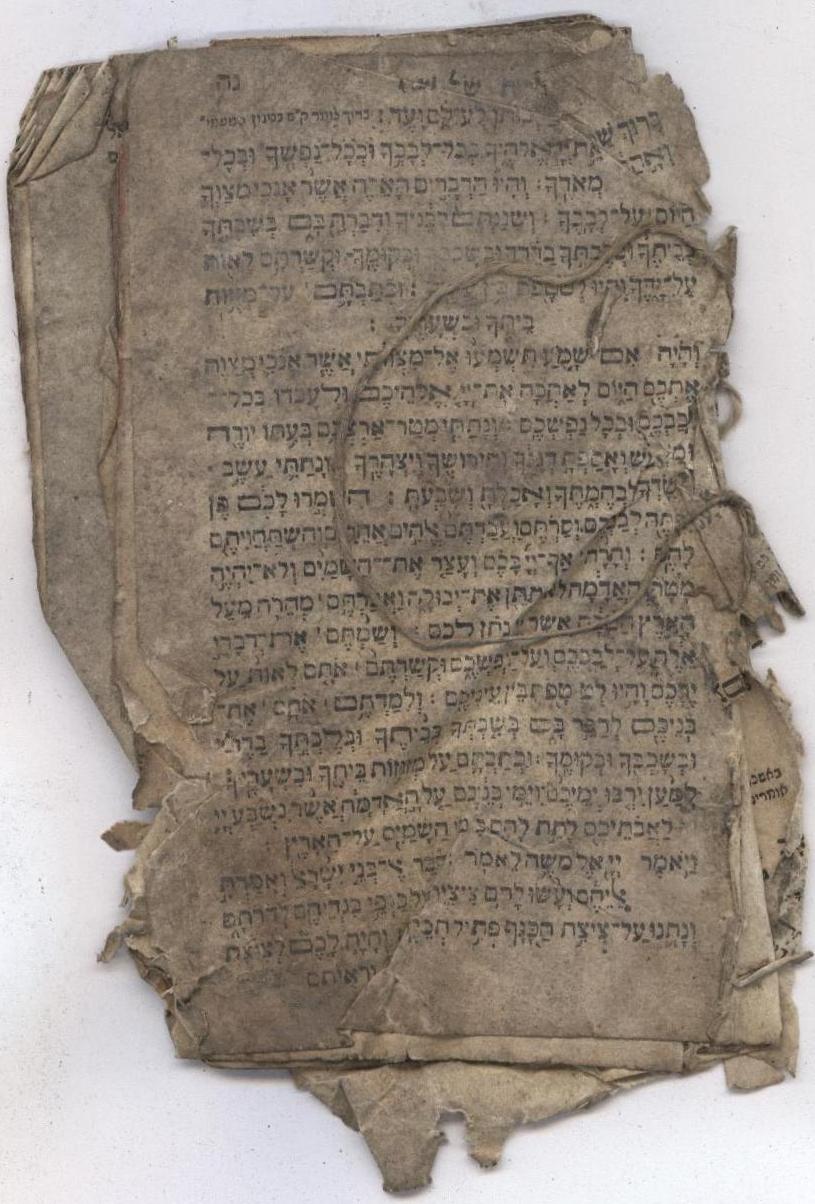 נה
ברוך לעולם ועד :
ואהבת את יי אלהיך בכל־לבבך ובכל־נפשך ובכל־
מאדך : והיו הדברים האלה אשר אנכי מצוך
היום על־לבבך : ושננתם לבניך ודברת בם בשבתך
בביתך ובלכתך בדרך ובשכבך ובקומך : וקשרתם לאות
על־ידך והיו לטטפת בין : וכתבתם על־מזוות
ביתך ובשעריך :
והיה אם שמע תשמעו אל־מצותי אשר אנכי מצוה
אתכם היום לאהבה את־יי אלהיכם ולעבדו בכל־
לבבכם ובכל נפשכם : ונתתי מטר־ארצכם בעתו יורה
ומלקוש ואספת דגנך ותירושך ויצהרך : ונתתי עשב
בשדך לבהמתך ואכלת ושבעת : השמרו לכם פן
יפתה לבבכם וסרתם ועבדתם אלהים אחרים והשתחויתם
להם : וחרה אף־יי בכם ועצר את־השמים ולא־יהיה
מטר והאדמה לא תתן את־יבולה ואבדתם מהרה מעל
הארץ הטבה אשר יי נתן לכם : ושמתם את־דברי
אלה על־לבבכם ועל־נפשכם וקשרתם אתם לאות על
ידכם והיו לטטפת בין עיניכם : ולמדתם אתם את־
בניכם לדבר בם בשבתך בביתך ובלכתך בדרך
ובשכבך ובקומך : וכתבתם על מזוזות ביתך ובשעריך :
למען ירבו ימיכם וימי בניכם על האדמה אשר נשבע יי
לאבתיכם לתת להם כימי השמים על־הארץ :
ויאמר יי אל משה לאמר : דבר אל־בני ישראל ואמרת
אלהם ועשו להם ציצית על־כנפי בגדיהם לדרתם
ונתנו על־ציצת הכנף פתיל תכלת : והיה לכם לציצת
וראיתם